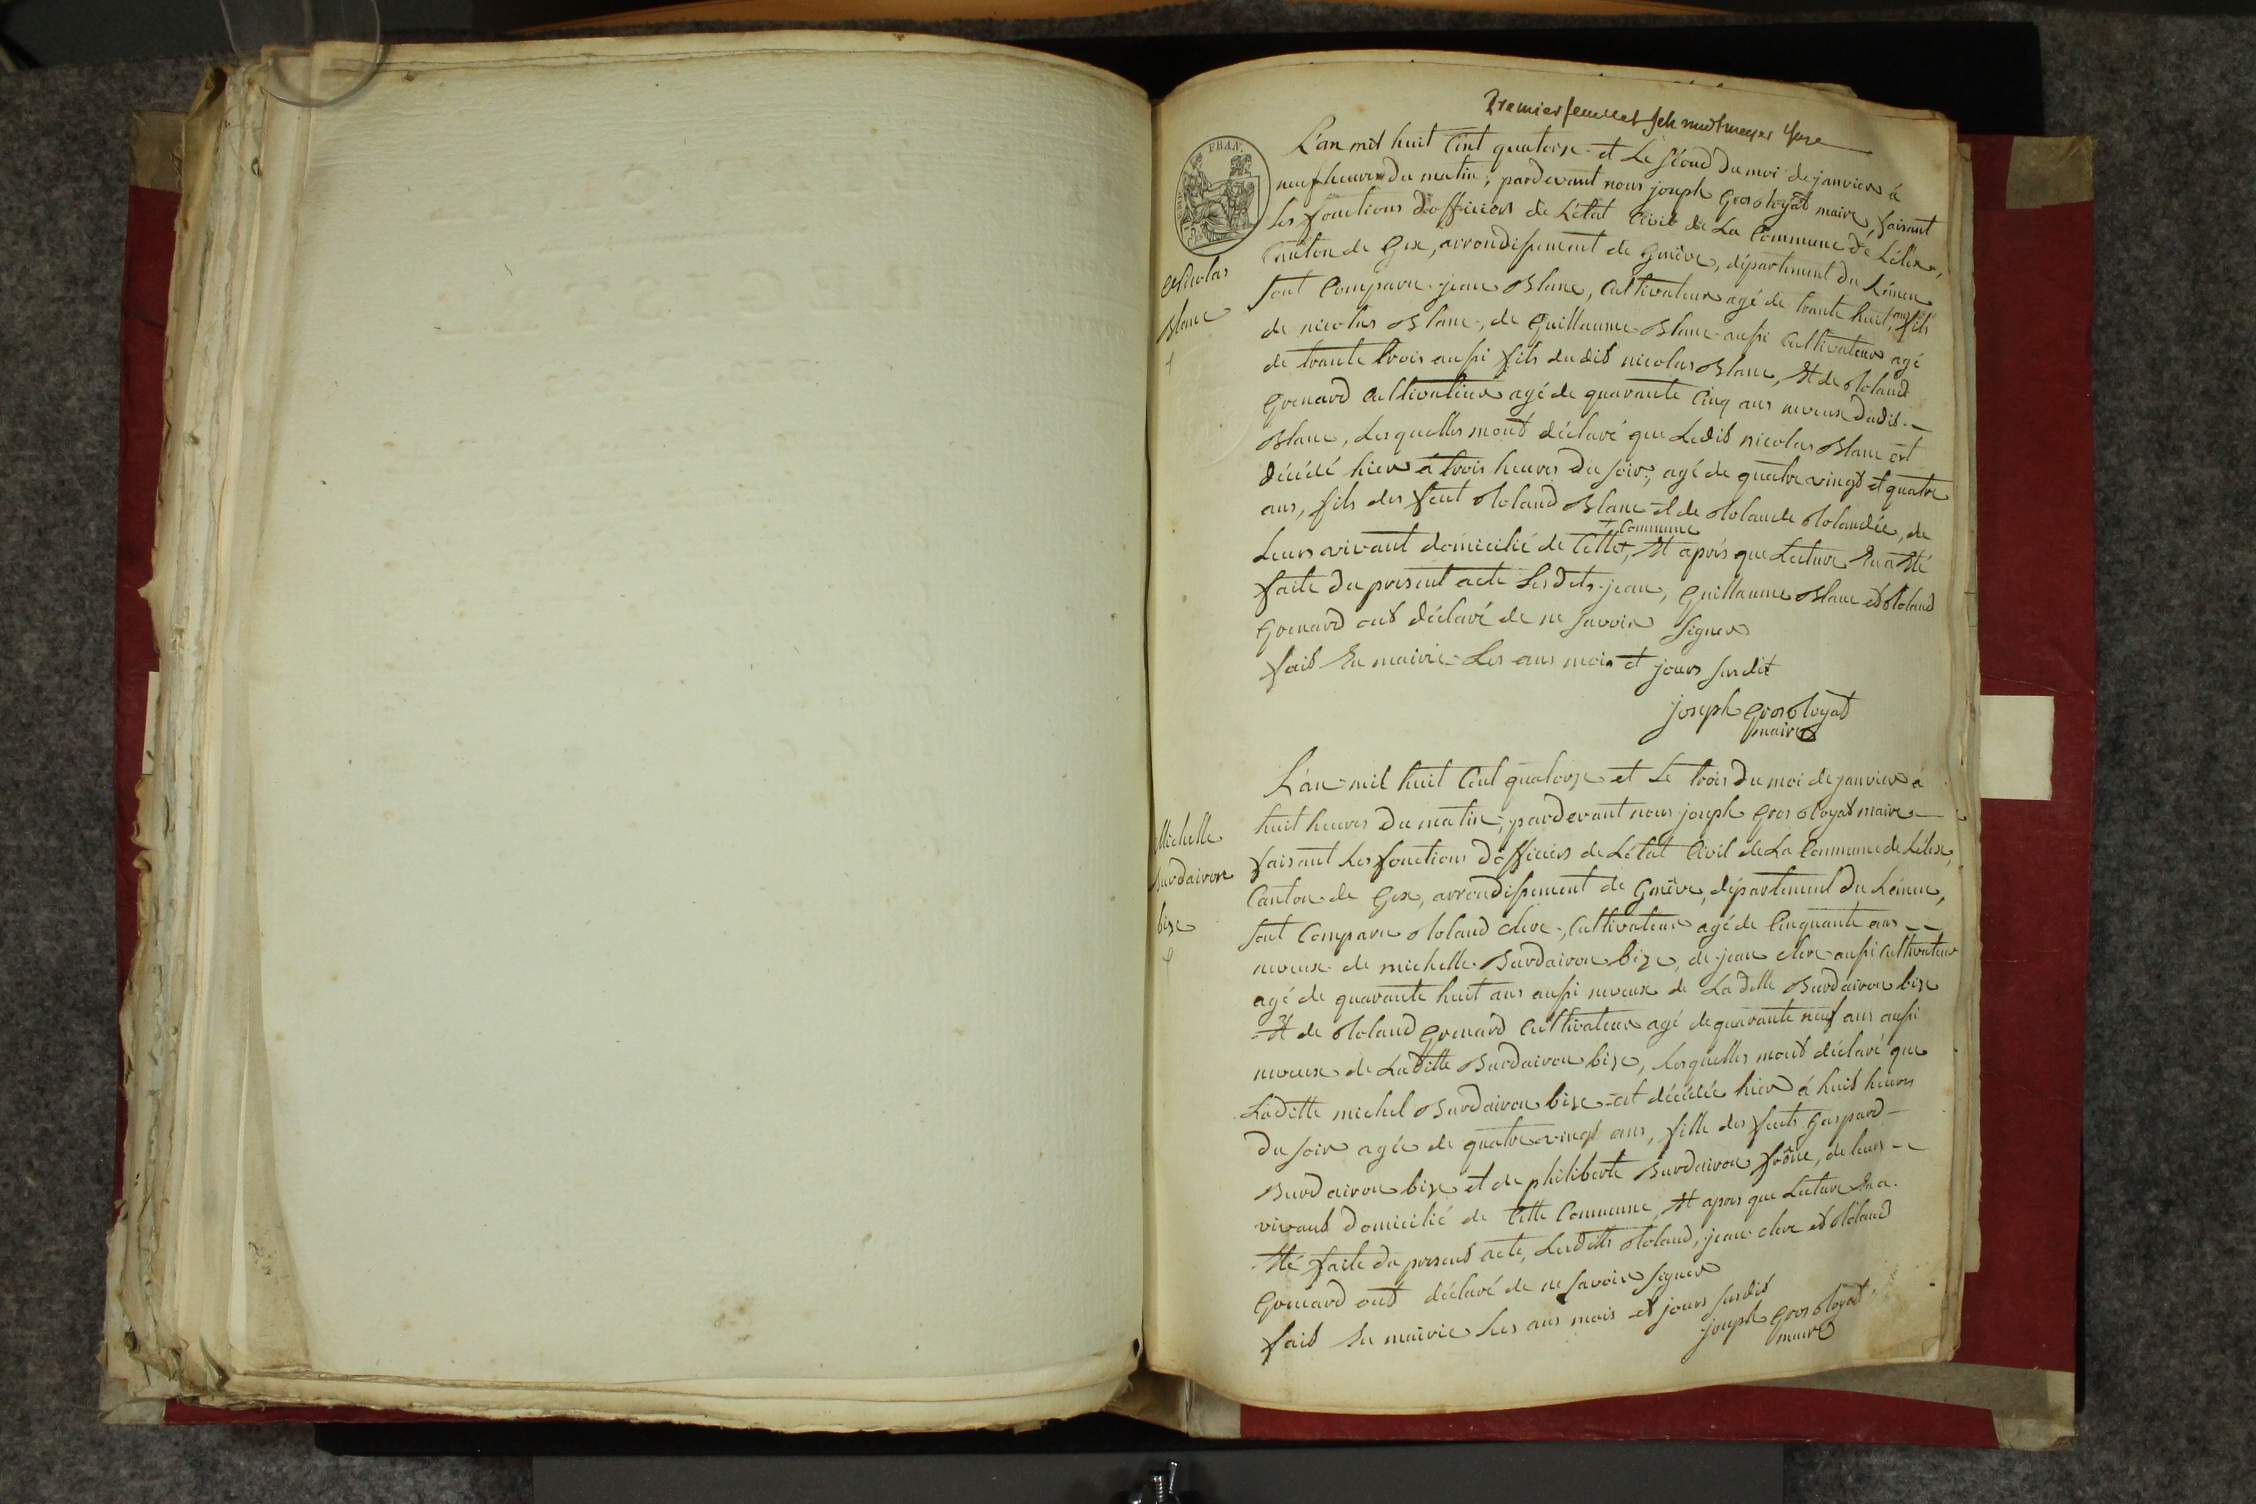 Premier feuillet Schmidtmeyer
FRAN.
L'an mil huit Cent quatorze et Le second du moi de janvier à
neuf heures du matin, pardevant nous joseph Grosroyat maire, faisant
les fonctions d'officiers de L'état Civil de La Commune de Lélex,
Canton de Gex, arrondissement de Genève, département du Léman
sont Comparu jean Blanc, Cultivateur agé de trante huit ans fils
de nicolas Blanc, de Guillaume Blanc aussi Cultivateur agé
de trante trois aussi fils dudit nicolas Blanc, Et de Roland
Grenard Cultivateur agé de quarante Cinq ans neveux dudit
Blanc, Lesquelles mont déclaré que Ledit nicolas Blanc est
décédé hier à trois heures du soir, agé de quatre vingt et quatre
ans, fils des feut Roland Blanc et de Rolande Rolandée, de
Leurs vivant domicilié de Cette + Commune, Et après que Lecture En a Eté
faite du present acte Lesdits jean, Guillaume Blanc et Roland
Grenard ont déclaré de ne savoir signer
fait En mairie Les ans mois et jours susdit
joseph Grosroyat
maire
Nicolas
Blanc
L'an mil huit Cent quatorze et Le trois du moi de janvier à
huit heures du matin, pardevant nous joseph Grosroyat maire
faisant Les fonctions d'officiers de L'état Civil de La Commune de Lélex,
Canton de Gex, arrondissement de Genève, département du Léman,
sont Comparu Roland clerc, Cultivateur agé de Cinquante ans
neveux de michelle Burdairon bize, de jean clerc aussi Cultivateur
agé de quarante huit ans aussi neveux de Ladette Burdairon bize
Et de Roland Grenard Cultivateur agé de quarante neuf ans aussi
neveux de Laditte Burdairon bize, Lesquelles mont déclaré que
Laditte michel Burdairon bize est décédée hier à huit heures
du soir agée de quatre vingt ans, fille des feuts Gaspard
Burdairon bize et de philiberte Burdairon frône, de leurs
vivant domicilié de Cette Commune, Et après que Lecture En a
Eté faite du present acte, Lesdits Roland, jean clerc et Roland
Grenard ont déclaré de ne savoir signer
fait En mairie Les ans mois et jours susdit
joseph Grosroyat
maire
Michelle
Burdairon
bize